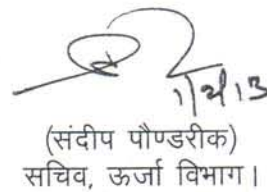 (संदीप पौण्डरीक)
सचिव, ऊर्जा विभाग।